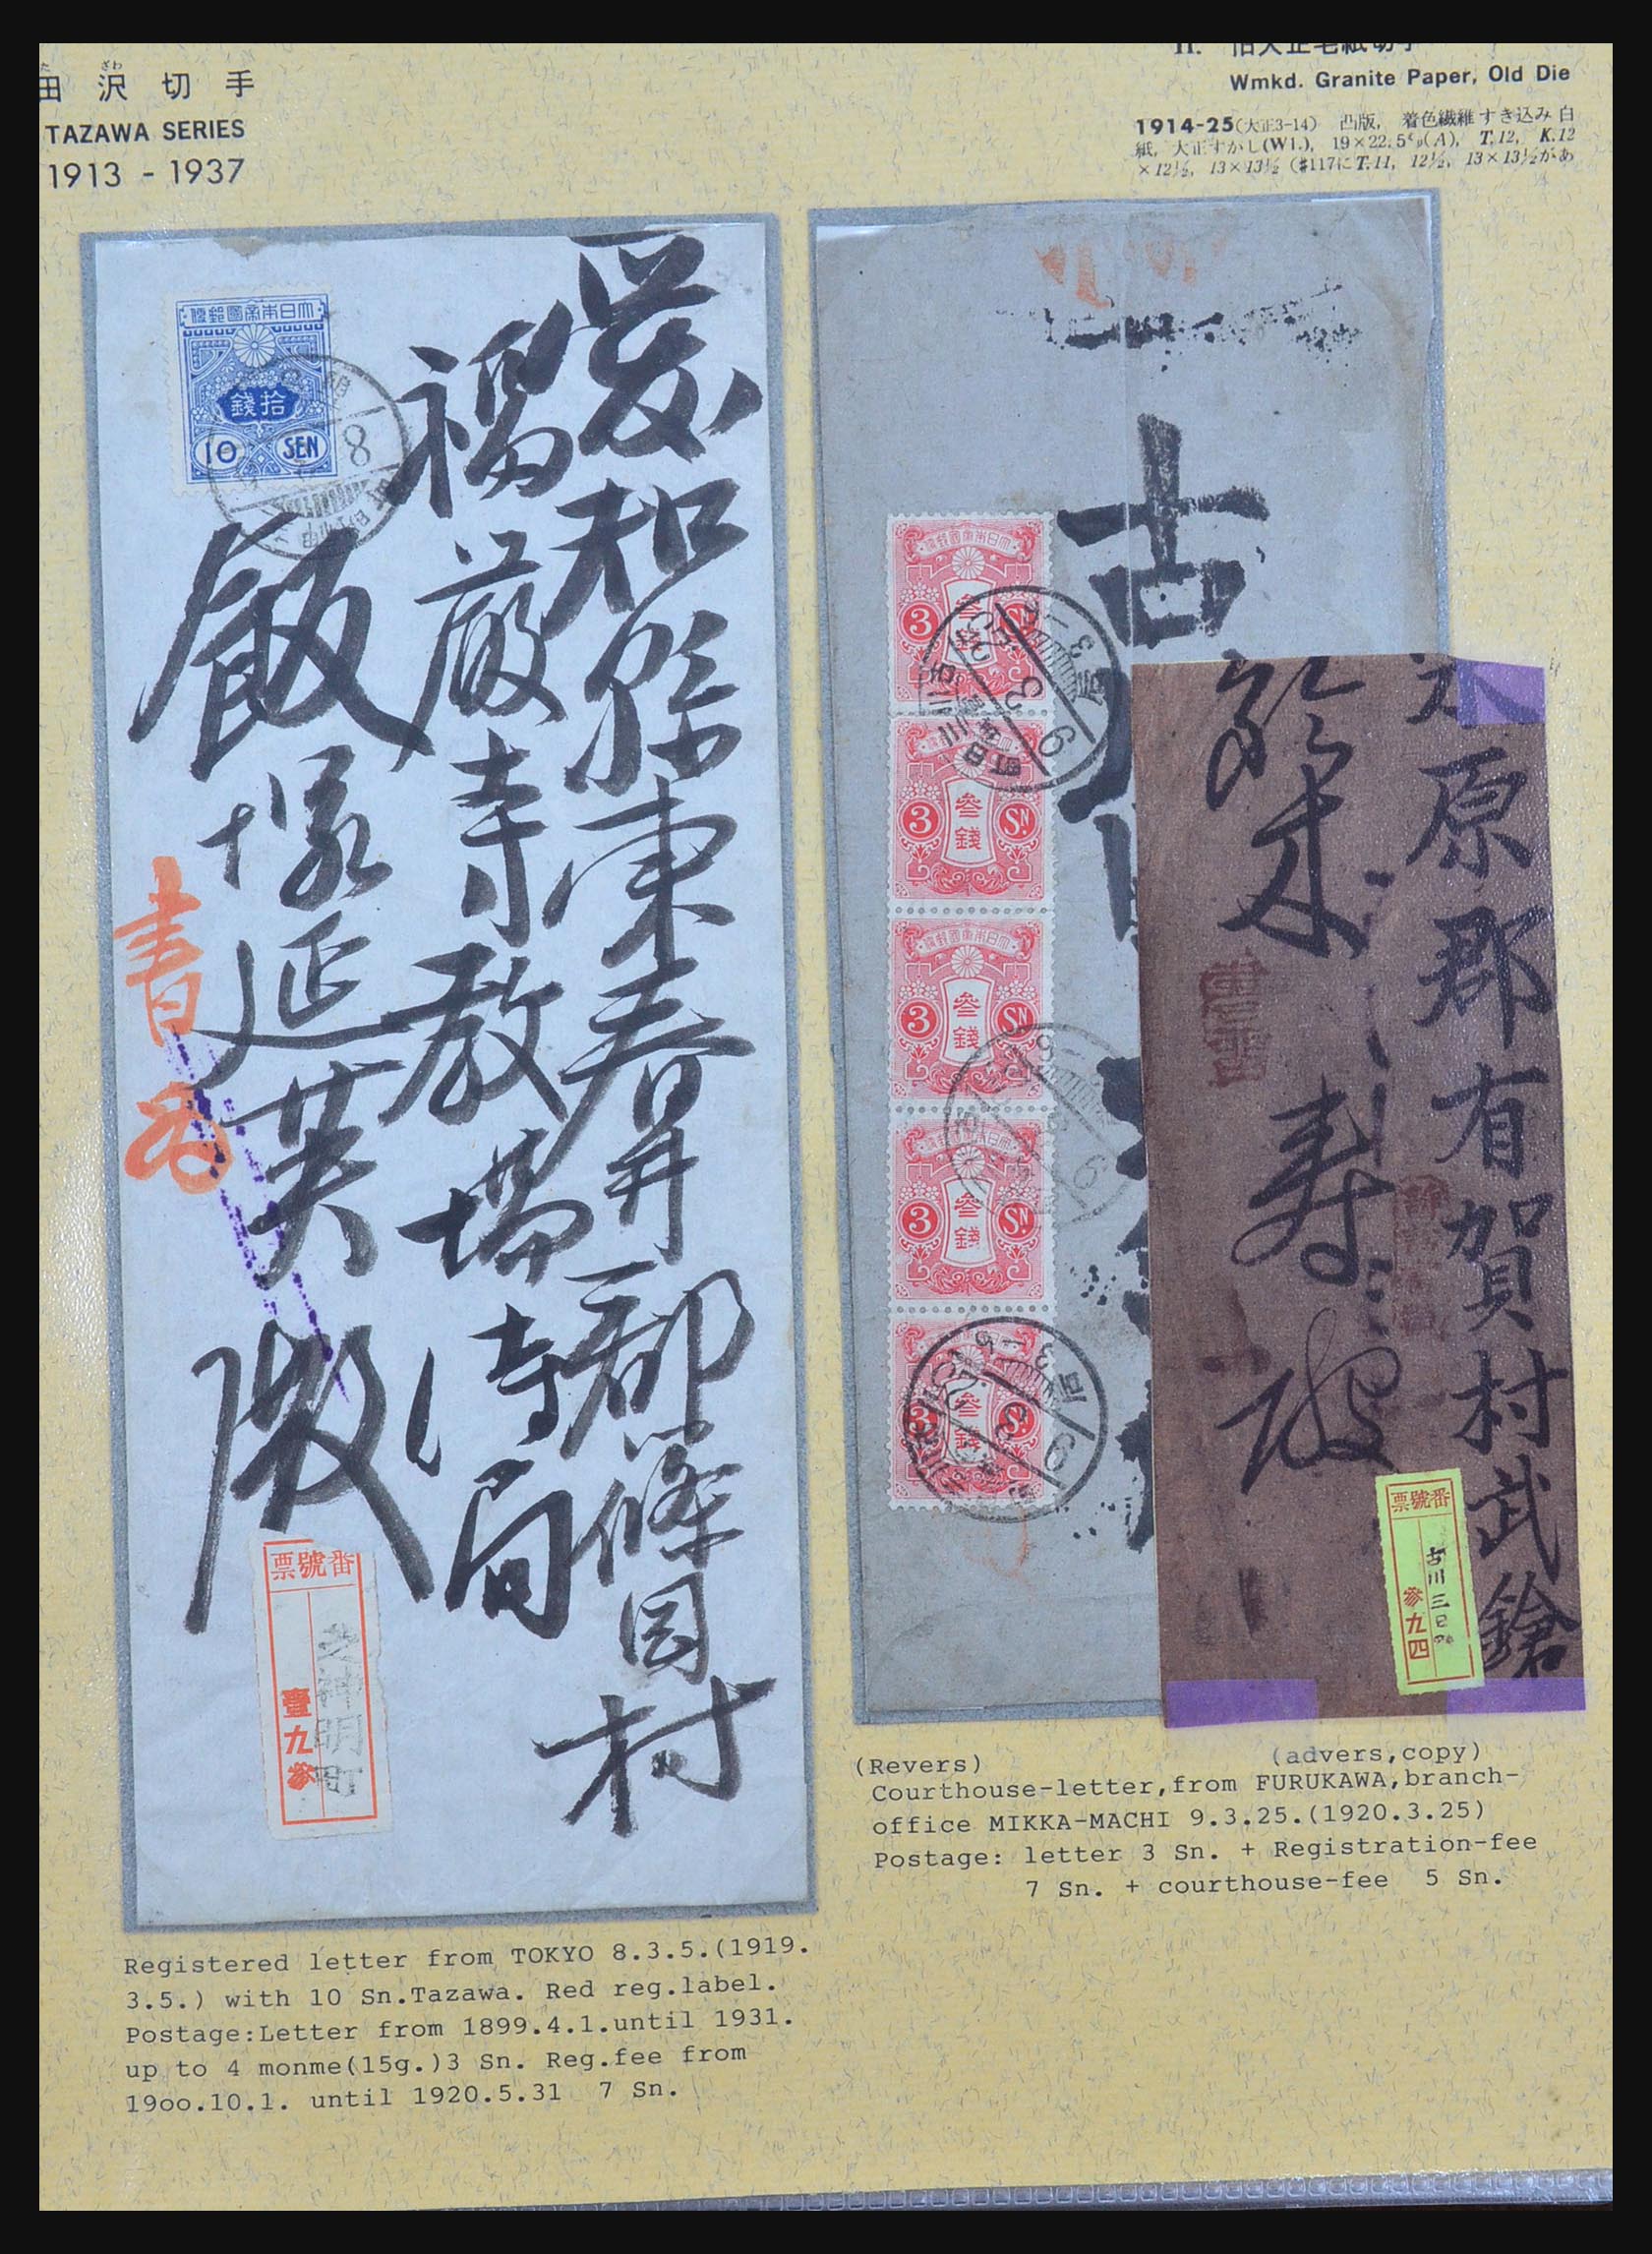 田沢切手
TAZAWA SERIES
1913 - 1937
H. 旧大正毛紙切手
Wmkd. Granite Paper, Old Die
1914-25(大正3-14) 凸版, 着色繊維すき込み白
紙, 大正すかし(W1.), 19×22.5㎜(A), T.12, K.12
×12½, 13×13½ (#117にT.11, 12½, 13×13½があ
大日本帝國郵便
拾錢
10 SEN
8
愛知縣東春日井郡篠岡村
福厳寺
飯塚
書留
番號票
神明町
壹九參
大日本帝國郵便
3 參錢 Sn.
3 參錢 Sn.
大日本帝國郵便
3 參錢 Sn.
3 參錢 Sn.
3 參錢 Sn.
古
原郡有賀村武鎗
寿
番號票
古川三日町
參九四
(Revers)
(advers,copy)
Courthouse-letter,from FURUKAWA,branch-
office MIKKA-MACHI 9.3.25.(1920.3.25)
Postage: letter 3 Sn. + Registration-fee
7 Sn. + courthouse-fee 5 Sn.
Registered letter from TOKYO 8.3.5.(1919.
3.5.) with 10 Sn.Tazawa. Red reg.label.
Postage:Letter from 1899.4.1.until 1931.
up to 4 monme(15g.)3 Sn. Reg.fee from
19oo.10.1. until 1920.5.31 7 Sn.